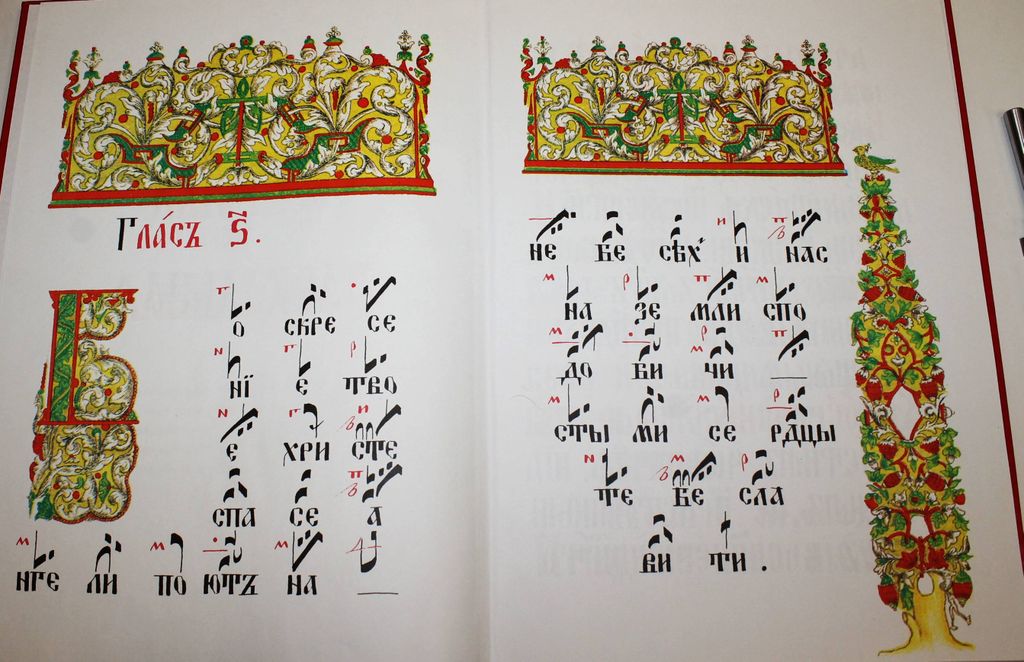 Гла́съ ѕ҃.
В о скре се
нїе тво
е хри сте
спа се а
нге ли по ютъ на
не бе сѣх и нас
на зе мли спо
до би чи
сты ми се рдцы
те бе сла
ви ти .